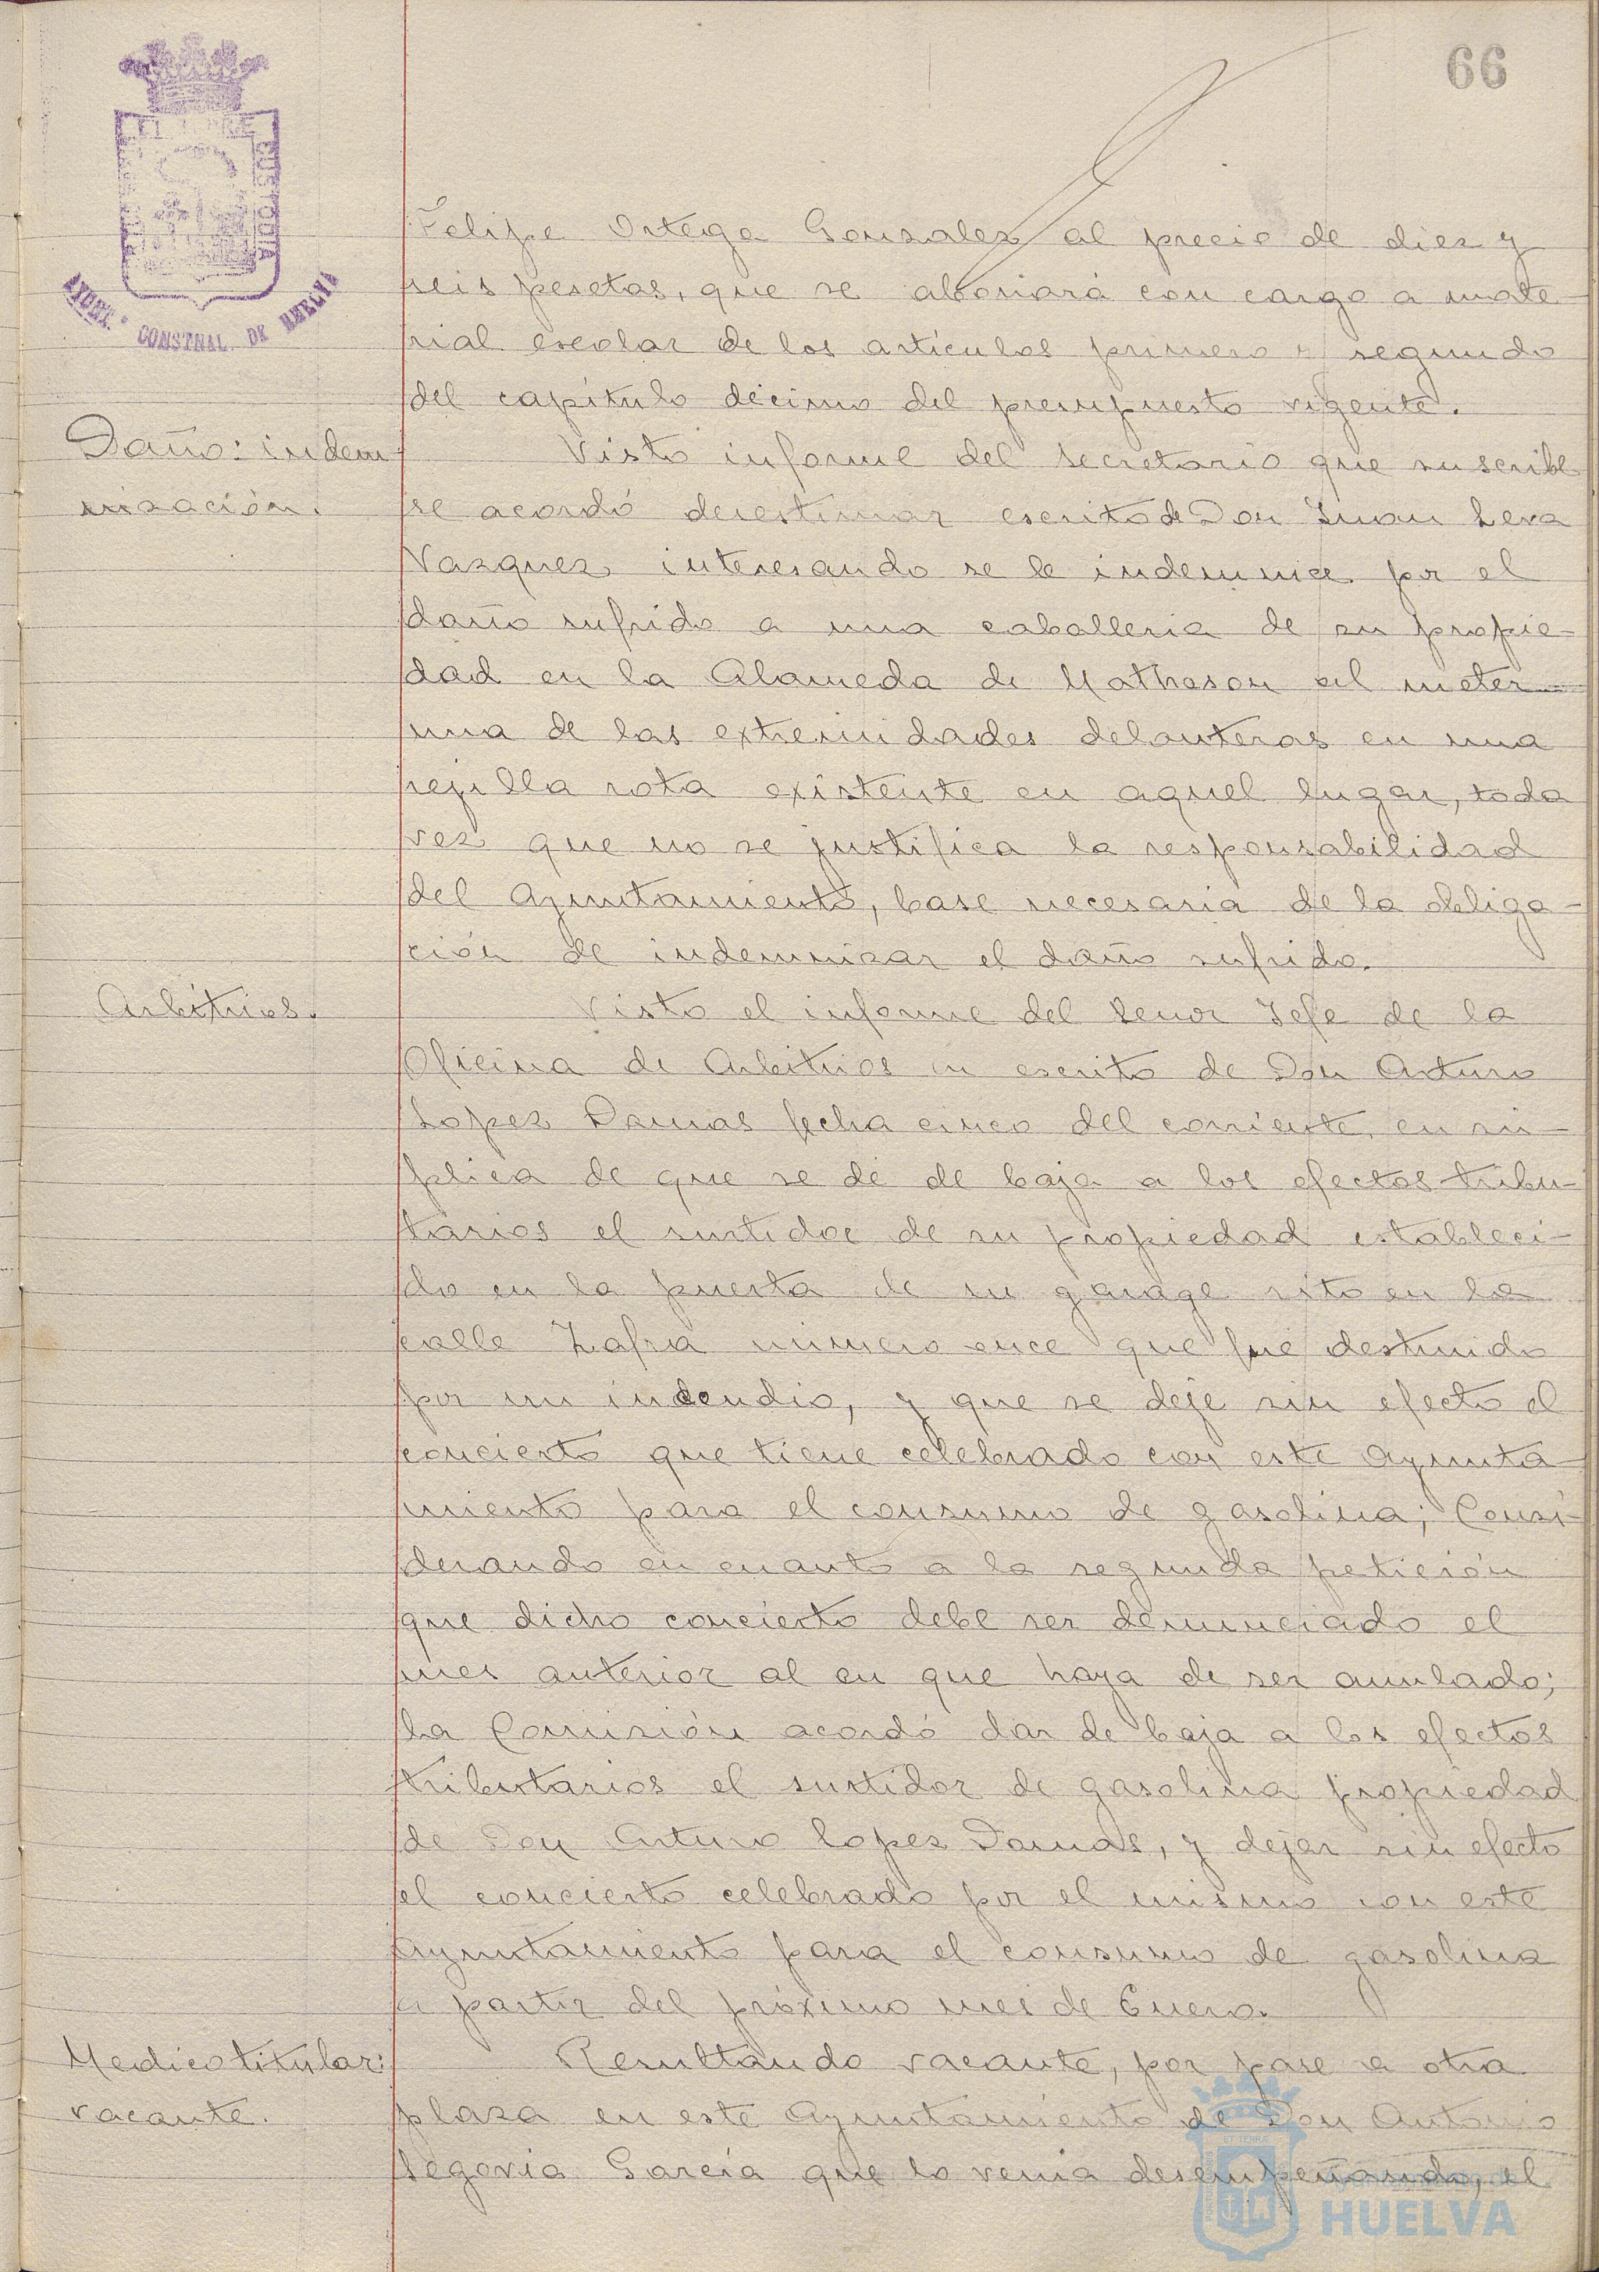 66
AYUNT. CONSTNAL. DE HUELVA
Felipe Ortega Gonzalez al precio de diez y
seis pesetas, que se abonará con cargo a mate-
rial escolar de los artículos primero y segundo
del capítulo décimo del presupuesto vigente.
Daño: indem-
nización.
Visto informe del Secretario que suscribe
se acordó desestimar escrito de Don Juan Leva
Vazquez interesando se le indemnice por el
daño sufrido a una caballeria de su propie-
dad en la Alameda de Matheson al meter
una de las extremidades delanteras en una
rejilla rota existente en aquel lugar, toda
vez que no se justifica la responsabilidad
del Ayuntamiento, base necesaria de la obliga-
ción de indemnizar el daño sufrido.
Arbitrios.
Visto el informe del Señor Jefe de la
Oficina de Arbitrios en escrito de Don Arturo
Lopez Damas fecha cinco del corriente, en sú-
plica de que se dé de baja a los efectos tribu-
tarios el surtidor de su propiedad estableci-
do en la puerta de su garage sito en la
calle Zafra número once que fué destruido
por un incendio, y que se deje sin efecto el
concierto que tiene celebrado con este Ayunta-
miento para el consumo de gasolina; Consi-
derando en cuanto a la segunda petición
que dicho concierto debe ser denunciado el
mes anterior al en que haya de ser anulado;
la Comisión acordó dar de baja a los efectos
tributarios el surtidor de gasolina propiedad
de Don Arturo Lopez Damas, y dejar sin efecto
el concierto celebrado por el mismo con este
Ayuntamiento para el consumo de gasolina
a partir del próximo mes de Enero.
Medico titular:
vacante.
Resultando vacante, por pase a otra
plaza en este Ayuntamiento de Don Antonio
Segovia García que lo venia desempeñando, el
HUELVA